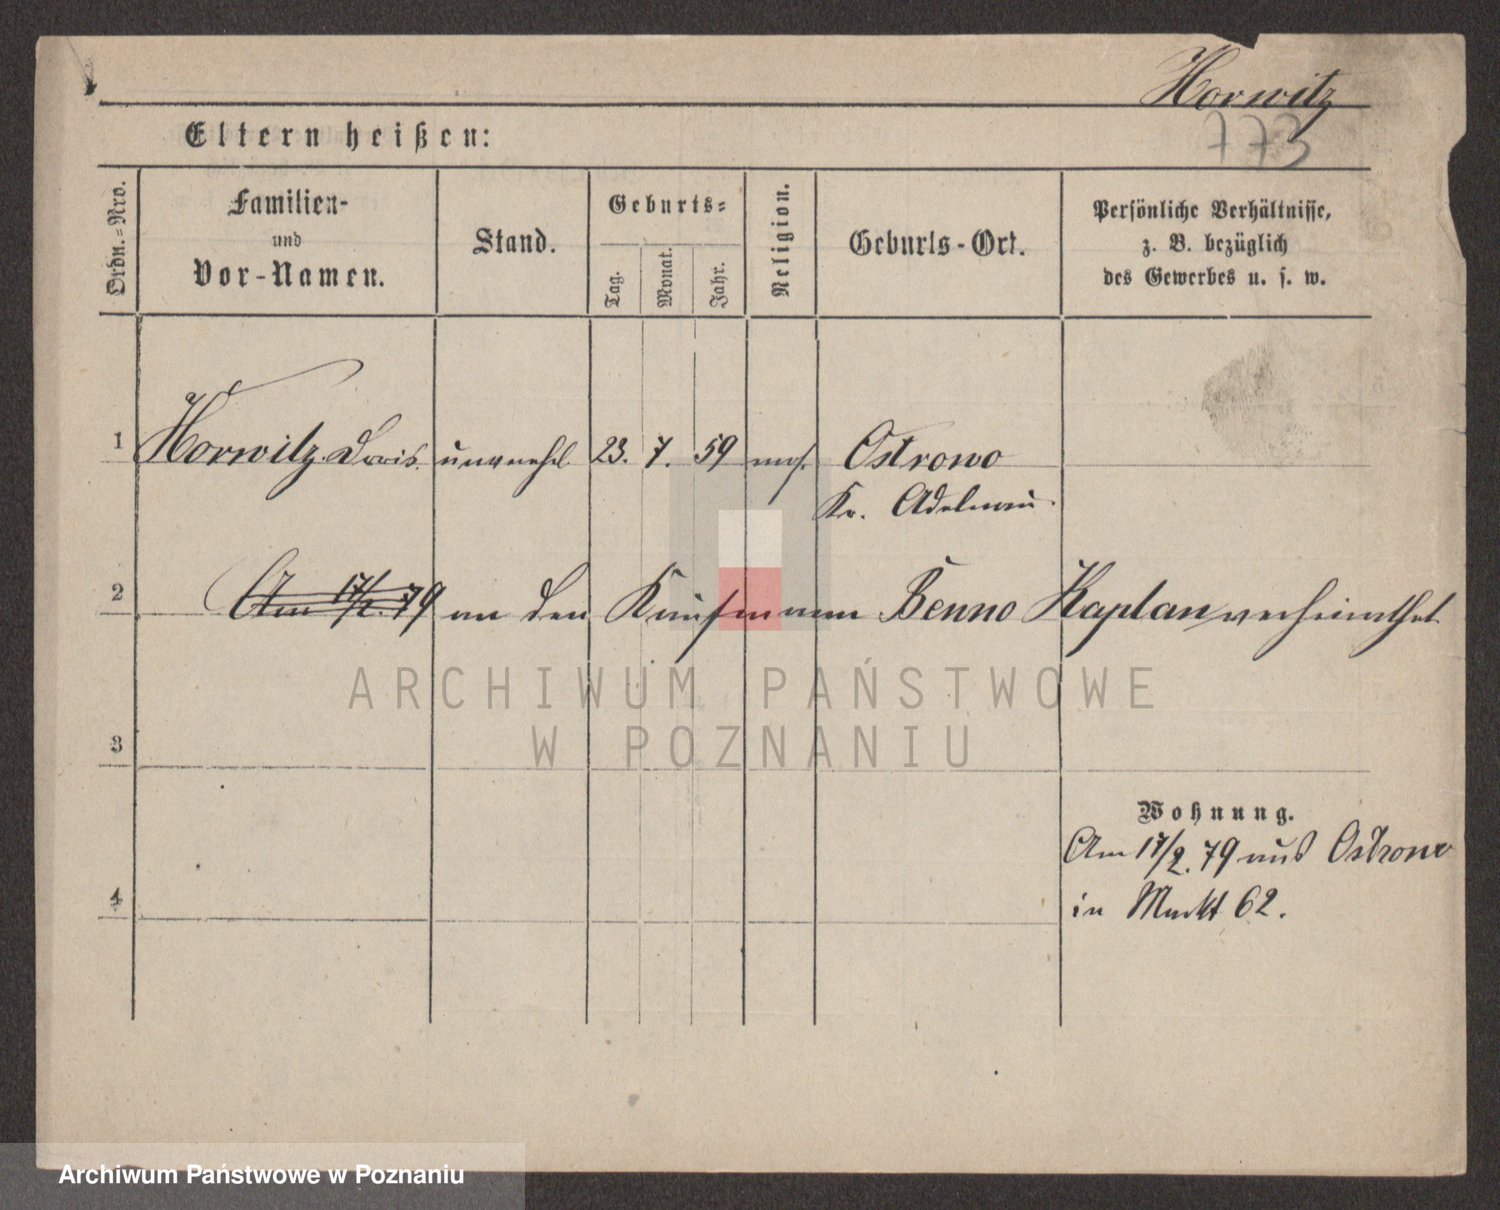 Horwitz
773
Eltern heißen:
Ordn.-Nro.
Familien-
und
Vor-Namen.
Stand.
Geburts-
Tag.
Monat.
Jahr.
Religion.
Geburts-Ort.
Persönliche Verhältnisse,
z. B. bezüglich
des Gewerbes u. s. w.
1 Horwitz Doris unverehel. 23. 7. 59 mos. Ostrowo
Kr. Adelnau.
2 Am 17/2. 79 an den Kaufmann Benno Kaplan verheirathet.
ARCHIWUM PAŃSTWOWE
W POZNANIU
3
Wohnung.
Am 17/2. 79 aus Ostrowo
4 in Markt 62.
Archiwum Państwowe w Poznaniu